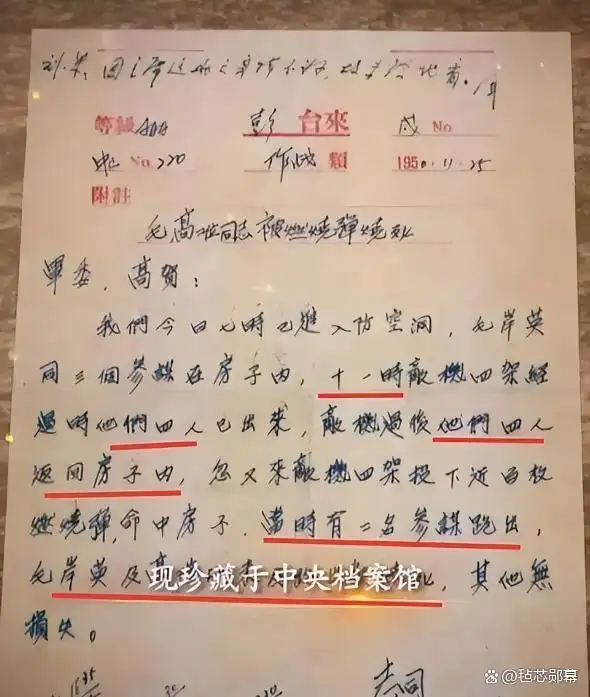 等級 AAA 彭 台來 成 No
No. 220 作战 類 1950.11.25
附註
毛高两同志被燃烧弹烧死
軍委, 高賀:
我們今日七時已進入防空洞, 毛岸英
同三個參謀在房子内, 十一時敵機四架經
過時他們四人已出来, 敵機過後他們四人
返回房子内, 忽又來敵機四架投下近百枚
燃燒彈, 命中房子, 當時有二名參謀跑出,
毛岸英及高
现珍藏于中央档案馆
其他無
損失。
@毡芯郧幕